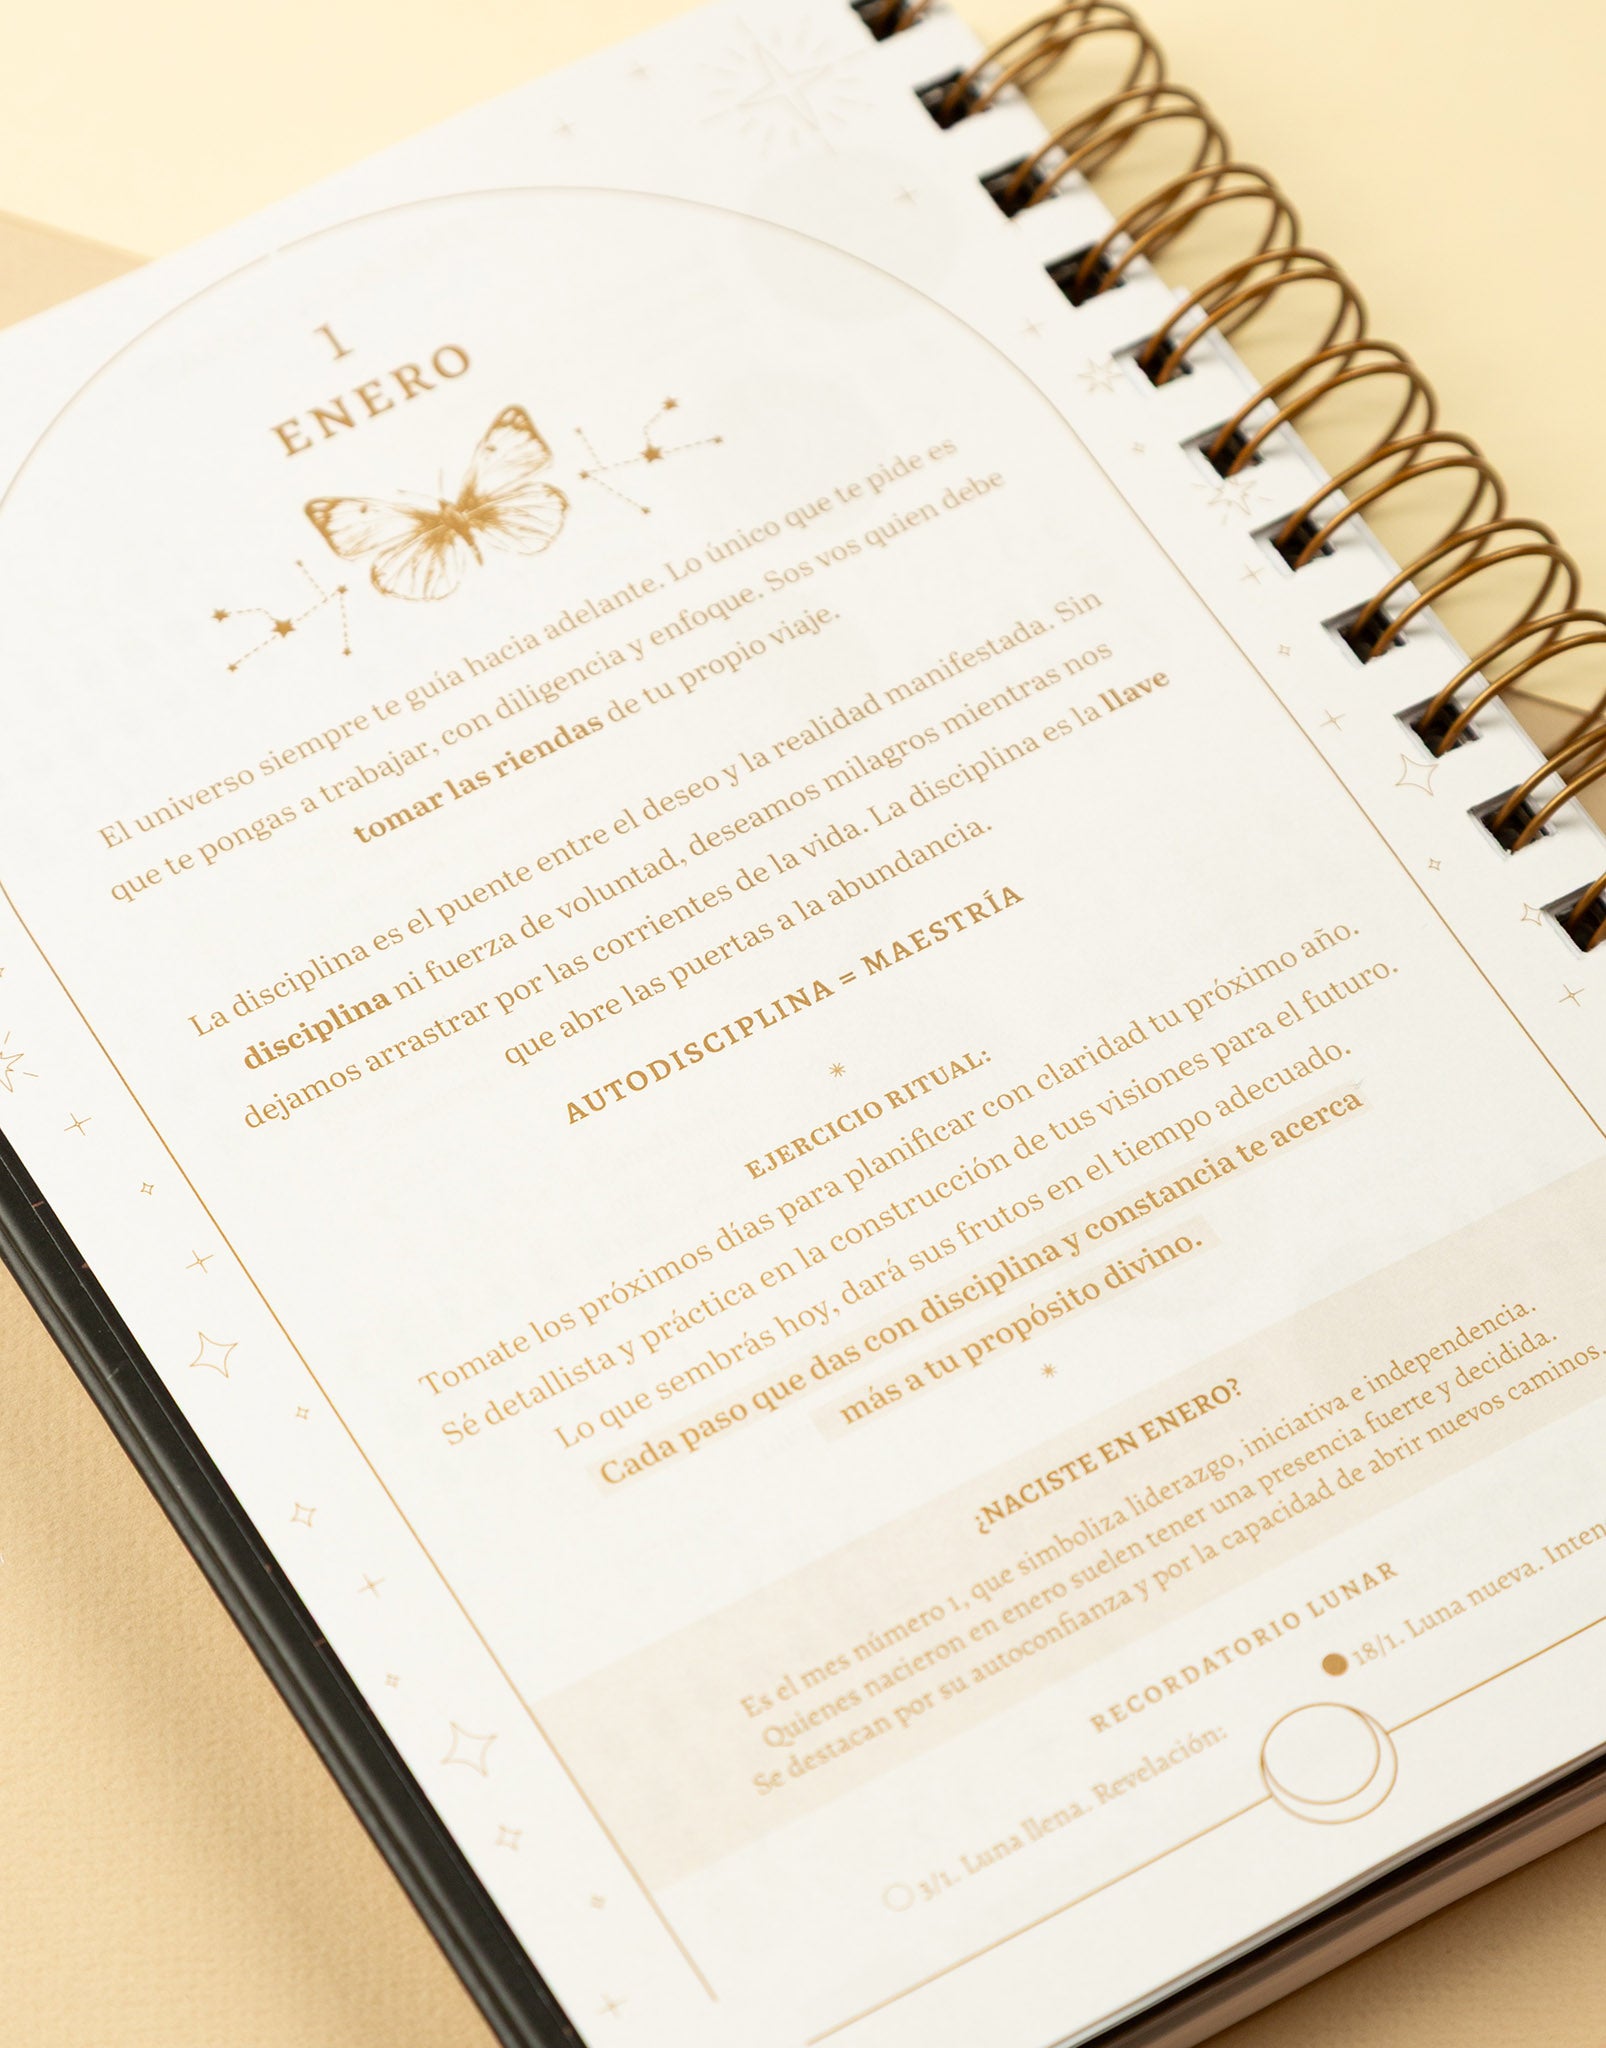 1
ENERO
El universo siempre te guía hacia adelante. Lo único que te pide es
que te pongas a trabajar, con diligencia y enfoque. Sos vos quien debe
tomar las riendas de tu propio viaje.
La disciplina es el puente entre el deseo y la realidad manifestada. Sin
disciplina ni fuerza de voluntad, deseamos milagros mientras nos
dejamos arrastrar por las corrientes de la vida. La disciplina es la llave
que abre las puertas a la abundancia.
AUTODISCIPLINA = MAESTRÍA
EJERCICIO RITUAL:
Tomate los próximos días para planificar con claridad tu próximo año.
Sé detallista y práctica en la construcción de tus visiones para el futuro.
Lo que sembrás hoy, dará sus frutos en el tiempo adecuado.
Cada paso que das con disciplina y constancia te acerca
más a tu propósito divino.
¿NACISTE EN ENERO?
Es el mes número 1, que simboliza liderazgo, iniciativa e independencia.
Quienes nacieron en enero suelen tener una presencia fuerte y decidida.
Se destacan por su autoconfianza y por la capacidad de abrir nuevos caminos.
RECORDATORIO LUNAR
3/1. Luna llena. Revelación:
18/1. Luna nueva. Inten